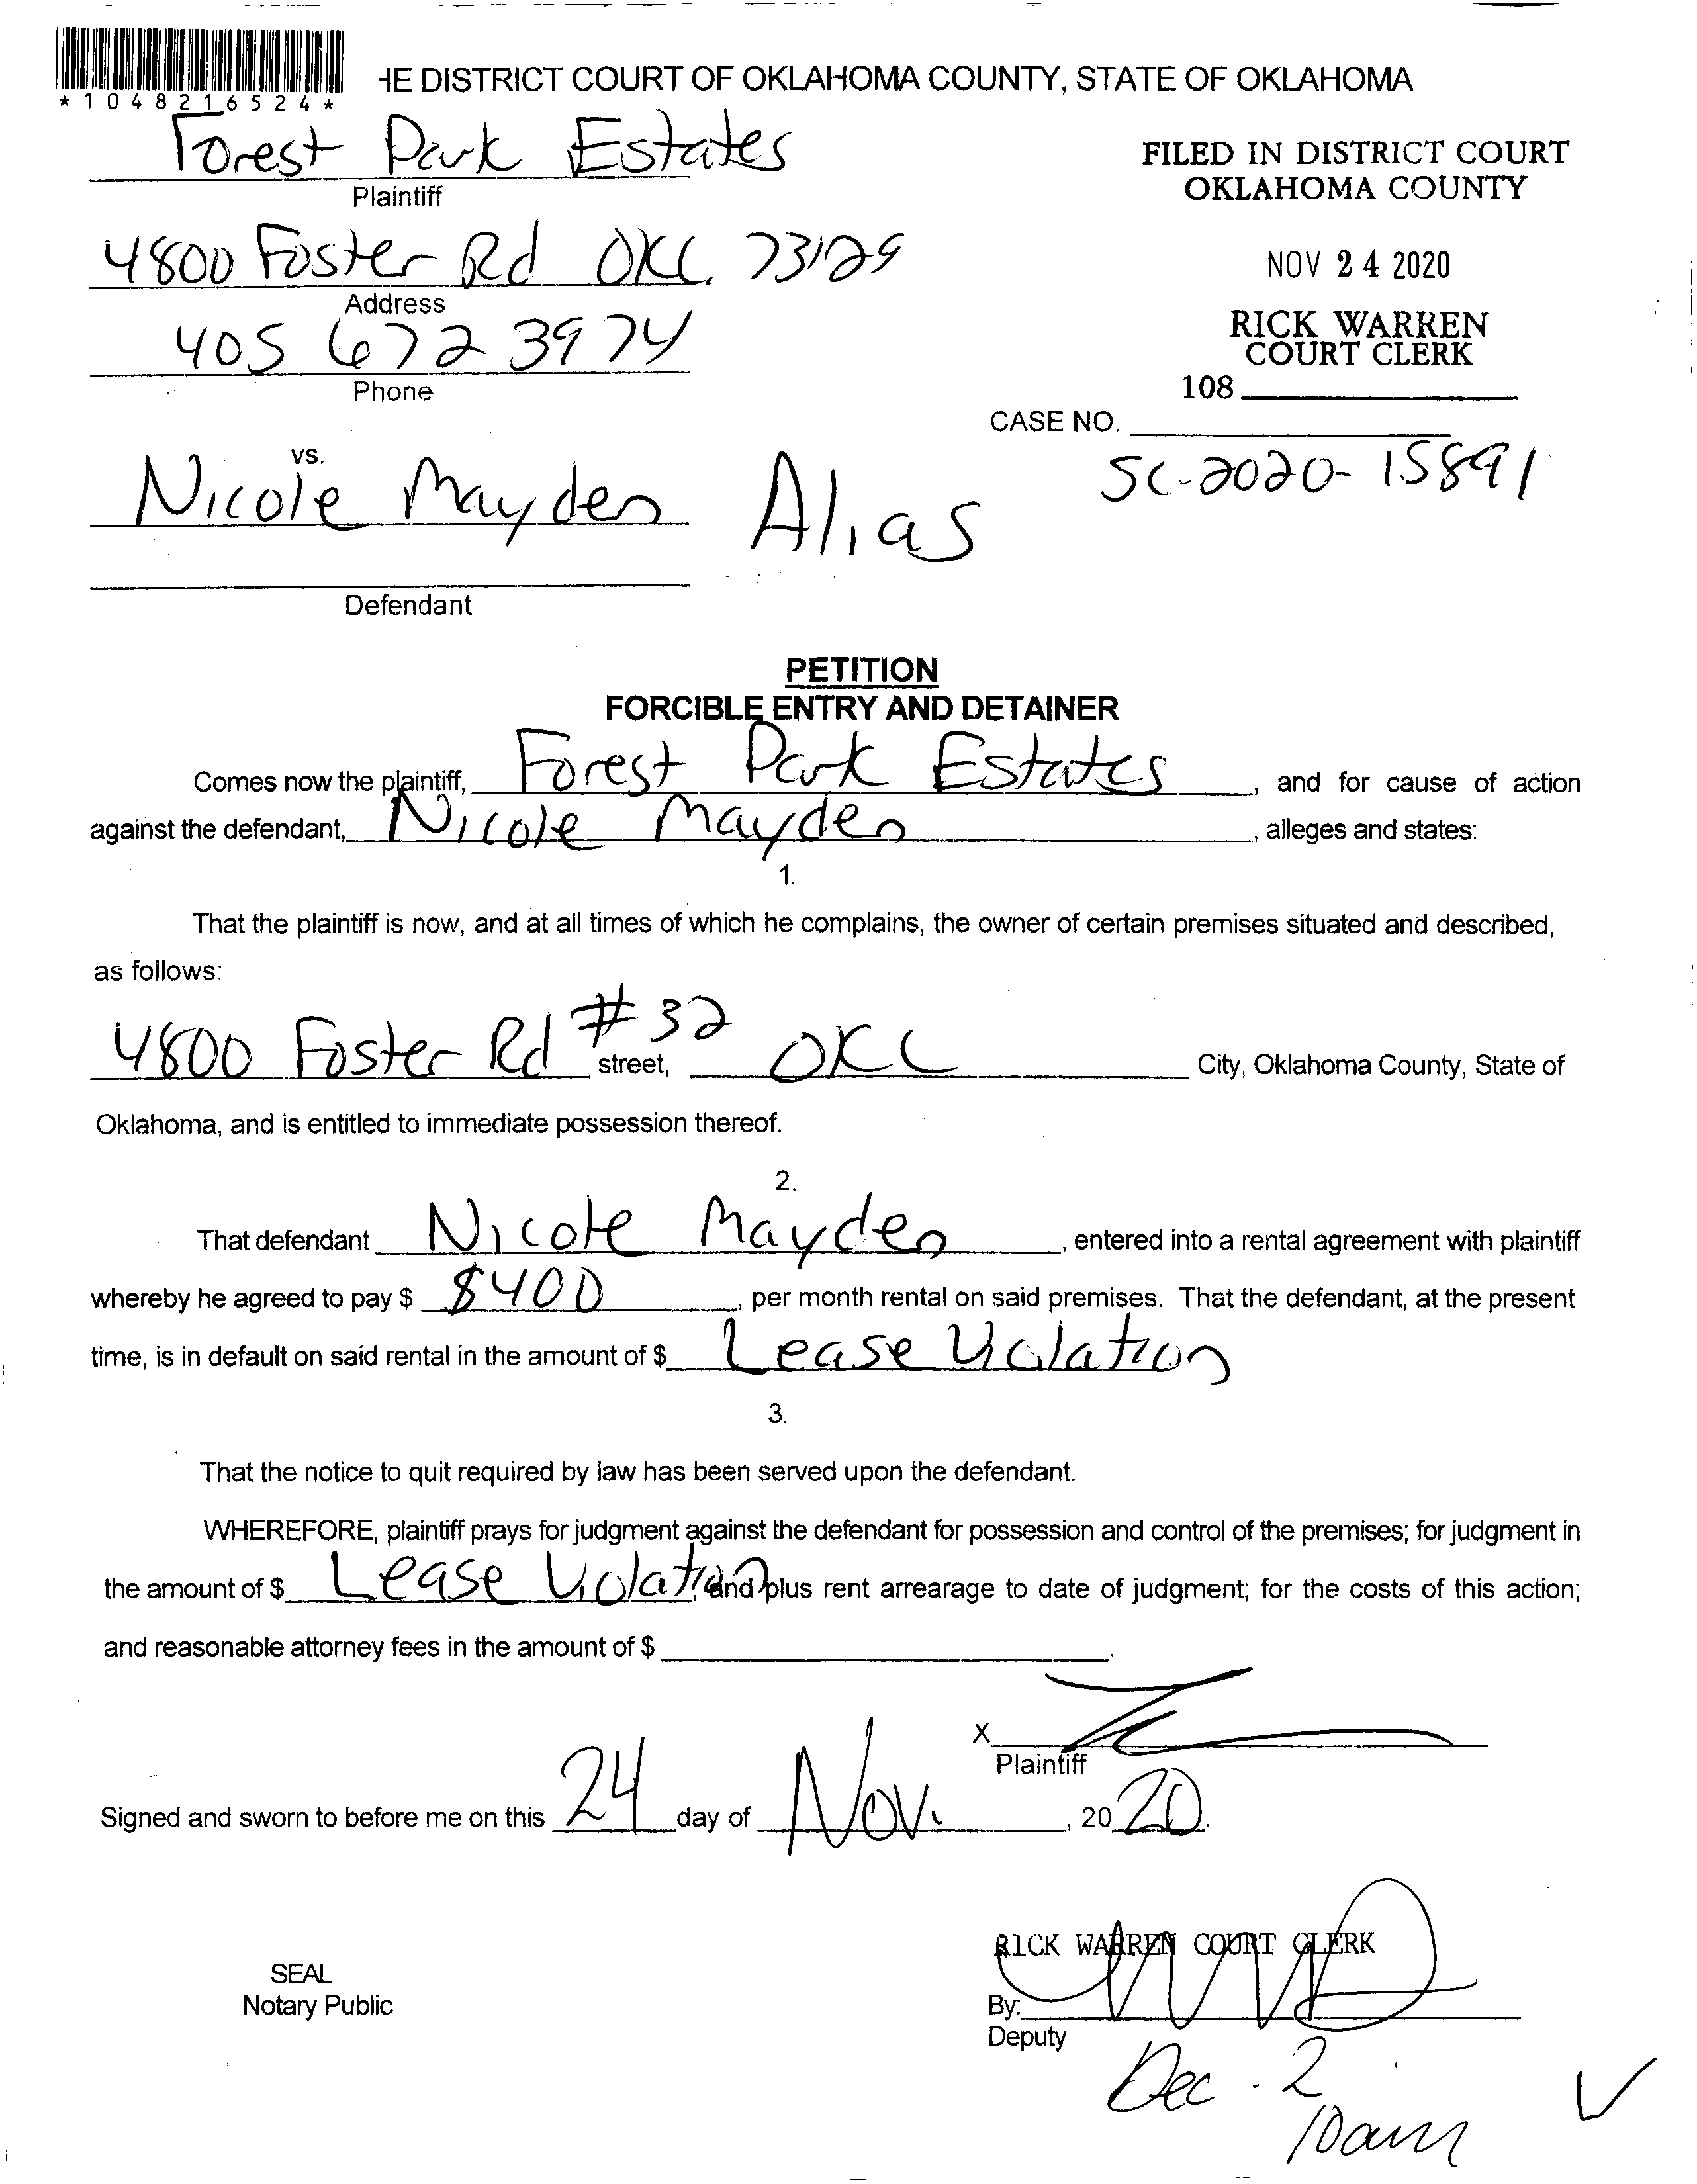 *1048216524*
HE DISTRICT COURT OF OKLAHOMA COUNTY, STATE OF OKLAHOMA
Forest Park Estates
Plaintiff
FILED IN DISTRICT COURT
OKLAHOMA COUNTY
4800 Foster Rd OKC. 73129
Address
NOV 24 2020
405 672 3974
Phone
RICK WARREN
COURT CLERK
108
CASE NO.
SC-2020-15891
vs.
Nicole Mayden Alias
Defendant
PETITION
FORCIBLE ENTRY AND DETAINER
Comes now the plaintiff, Forest Park Estates, and for cause of action
against the defendant, Nicole Mayden, alleges and states:
1.
That the plaintiff is now, and at all times of which he complains, the owner of certain premises situated and described,
as follows:
4800 Foster Rd #32 street, OKC City, Oklahoma County, State of
Oklahoma, and is entitled to immediate possession thereof.
2.
That defendant Nicole Mayden, entered into a rental agreement with plaintiff
whereby he agreed to pay $ $400, per month rental on said premises. That the defendant, at the present
time, is in default on said rental in the amount of $ Lease Violation
3.
That the notice to quit required by law has been served upon the defendant.
WHEREFORE, plaintiff prays for judgment against the defendant for possession and control of the premises; for judgment in
the amount of $ Lease Violation, and plus rent arrearage to date of judgment; for the costs of this action;
and reasonable attorney fees in the amount of $ .
X
Plaintiff
Signed and sworn to before me on this 24 day of Nov. , 2020.
RICK WARREN COURT CLERK
SEAL
Notary Public
By:
Deputy
Dec. 2
10am